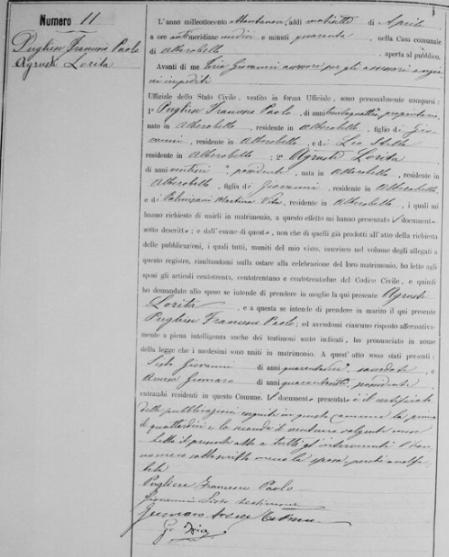 Numero 11
Pugliese Francesco Paolo
Agrusti Lorita
L'anno milleottocento ottantanove, addì ventiotto di Aprile
a ore antimeridiane undici e minuti quaranta, nella Casa comunale
di Alberobello, aperta al pubblico.
Avanti di me Giovanni assessore per gli assessori
impediti
Uffiziale dello Stato Civile, vestito in forma Ufficiale, sono personalmente comparsi:
1° Pugliese Francesco Paolo, di anni ventiquattro, proprietario,
nato in Alberobello, residente in Alberobello, figlio di Gio-
vanni, residente in Alberobello, e di Leo Stella
residente in Alberobello; 2° Agrusti Lorita
di anni ventuno, possidente, nata in Alberobello, residente in
Alberobello, figlia di Giovanni, residente in Alberobello,
e di Palmisani Martina Vita, residente in Alberobello, i quali mi
hanno richiesto di unirli in matrimonio, a questo effetto mi hanno presentato i documenti
sotto descritto; e dall'esame di questo, non che di quelli già prodotti all'atto della richiesta
delle pubblicazioni, i quali tutti, muniti del mio visto, inserisco nel volume degli allegati a
questo registro, risultandomi nulla ostare alla celebrazione del loro matrimonio, ho letto agli
sposi gli articoli centotrenta, centotrentuno e centotrentadue del Codice Civile, e quindi
ho domandato allo sposo se intende di prendere in moglie la qui presente Agrusti
Lorita, e a questa se intende di prendere in marito il qui presente
Pugliese Francesco Paolo; ed avendomi ciascuno risposto affermativamente
a piena intelligenza anche dei testimoni sotto indicati, ho pronunciato in nome
della legge che i medesimi sono uniti in matrimonio. A quest'atto sono stati presenti:
Sisto Giovanni di anni quarantun, e
Gennaro di anni quarantotto, possidente,
entrambi residenti in questo Comune. I documento presentato è il certificato
delle pubblicazioni eseguite in questo Comune la prima
il quattordici e la seconda il ventuno volgente mese
Letto il presente atto a tutti gli intervenuti l'han-
no meco sottoscritto meno la sposa, perché analfa-
beta
Pugliese Francesco Paolo
Giovanni Sisto testimone
Gennaro testimone